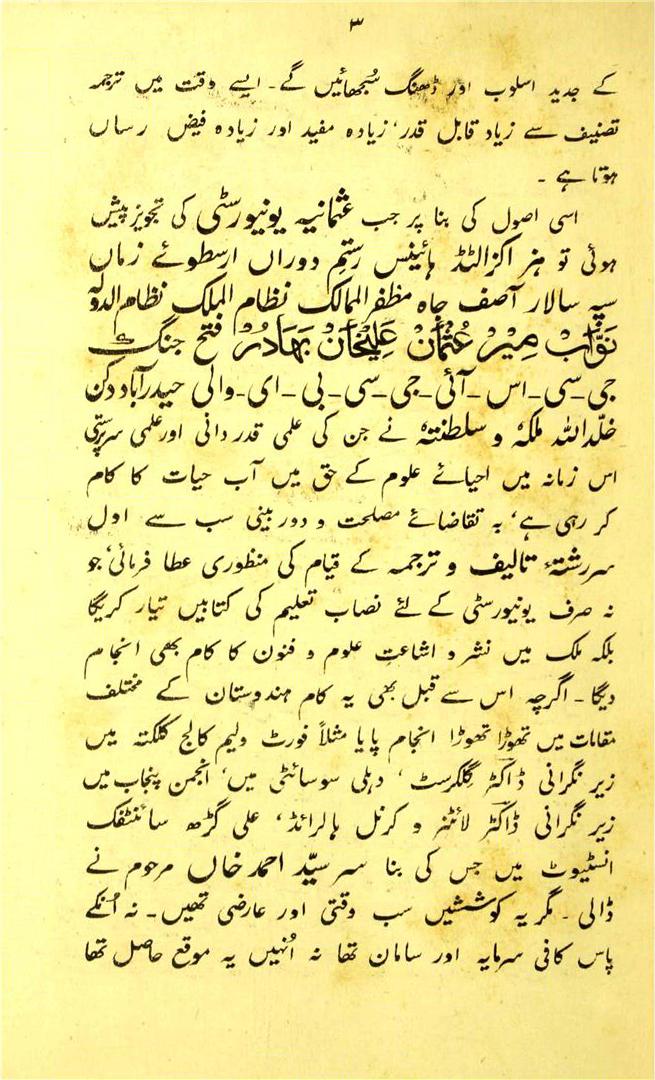 ۳
کے جدید اسلوب اور ڈھنگ سُجھائیں گے ۔ ایسے وقت میں ترجمہ
تصنیف سے زیاد قابل قدر، زیادہ مفید اور زیادہ فیض رساں
ہوتا ہے ۔
اسی اصول کی بنا پر جب عثمانیہ یونیورسٹی کی تجویز پیش
ہوئی تو ہز اکزالٹڈ ہائینس رستمِ دوراں ارسطوئے زماں
سپہ سالار آصف جاہ مظفر الممالک نظام الملک نظام الدولہ
نَوَّابْ مِیْر عُثْمَانْ عَلِیْخَانْ بَهَادُرْ فتح جنگ
جی ۔ سی ۔ اس ۔ آئی ۔ جی ۔ سی ۔ بی ۔ ای ۔ والی حیدرآباد دکن
خلّد اللہ ملکہٗ و سلطنتہٗ نے جن کی علمی قدردانی اور علمی سرپرستی
اس زمانہ میں احیائے علوم کے حق میں آب حیات کا کام
کر رہی ہے، بہ تقاضائے مصلحت و دور بینی سب سے اول
سررشتۂ تالیف و ترجمہ کے قیام کی منظوری عطا فرمائی، جو
نہ صرف یونیورسٹی کے لئے نصاب تعلیم کی کتابیں تیار کریگا
بلکہ ملک میں نشر و اشاعتِ علوم و فنون کا کام بھی انجام
دیگا ۔ اگرچہ اس سے قبل بھی یہ کام ہندوستان کے مختلف
مقامات میں تھوڑا تھوڑا انجام پایا مثلاً فورٹ ولیم کالج کلکتہ میں
زیر نگرانی ڈاکٹر گِلکرسٹ، دہلی سوسائٹی میں، انجمن پنجاب میں
زیر نگرانی ڈاکٹر لائٹنر و کرنل ہالرائڈ، علی گڑھ سائنٹفک
انسٹیوٹ میں جس کی بنا سر سیّد احمد خاں مرحوم نے
ڈالی ۔ مگر یہ کوششیں سب وقتی اور عارضی تھیں ۔ نہ اُنکے
پاس کافی سرمایہ اور سامان تھا نہ اُنہیں یہ موقع حاصل تھا